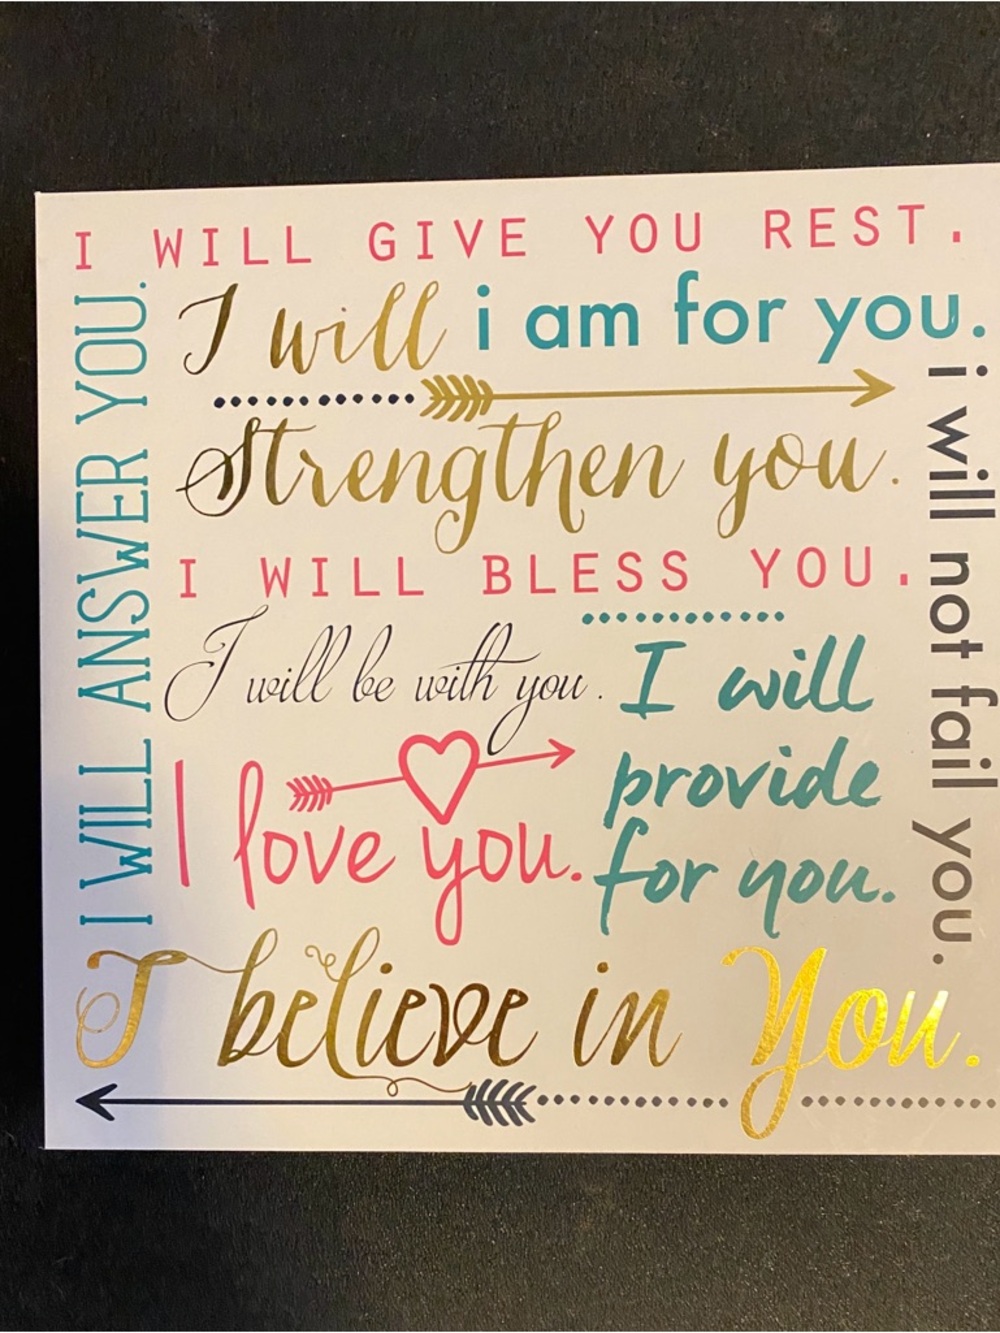 I WILL GIVE YOU REST.
I WILL ANSWER YOU.
I will
i am for you.
Strengthen you.
i will not fail you.
I WILL BLESS YOU.
I will be with you.
I will
provide
for you.
I love you.
I believe in You.